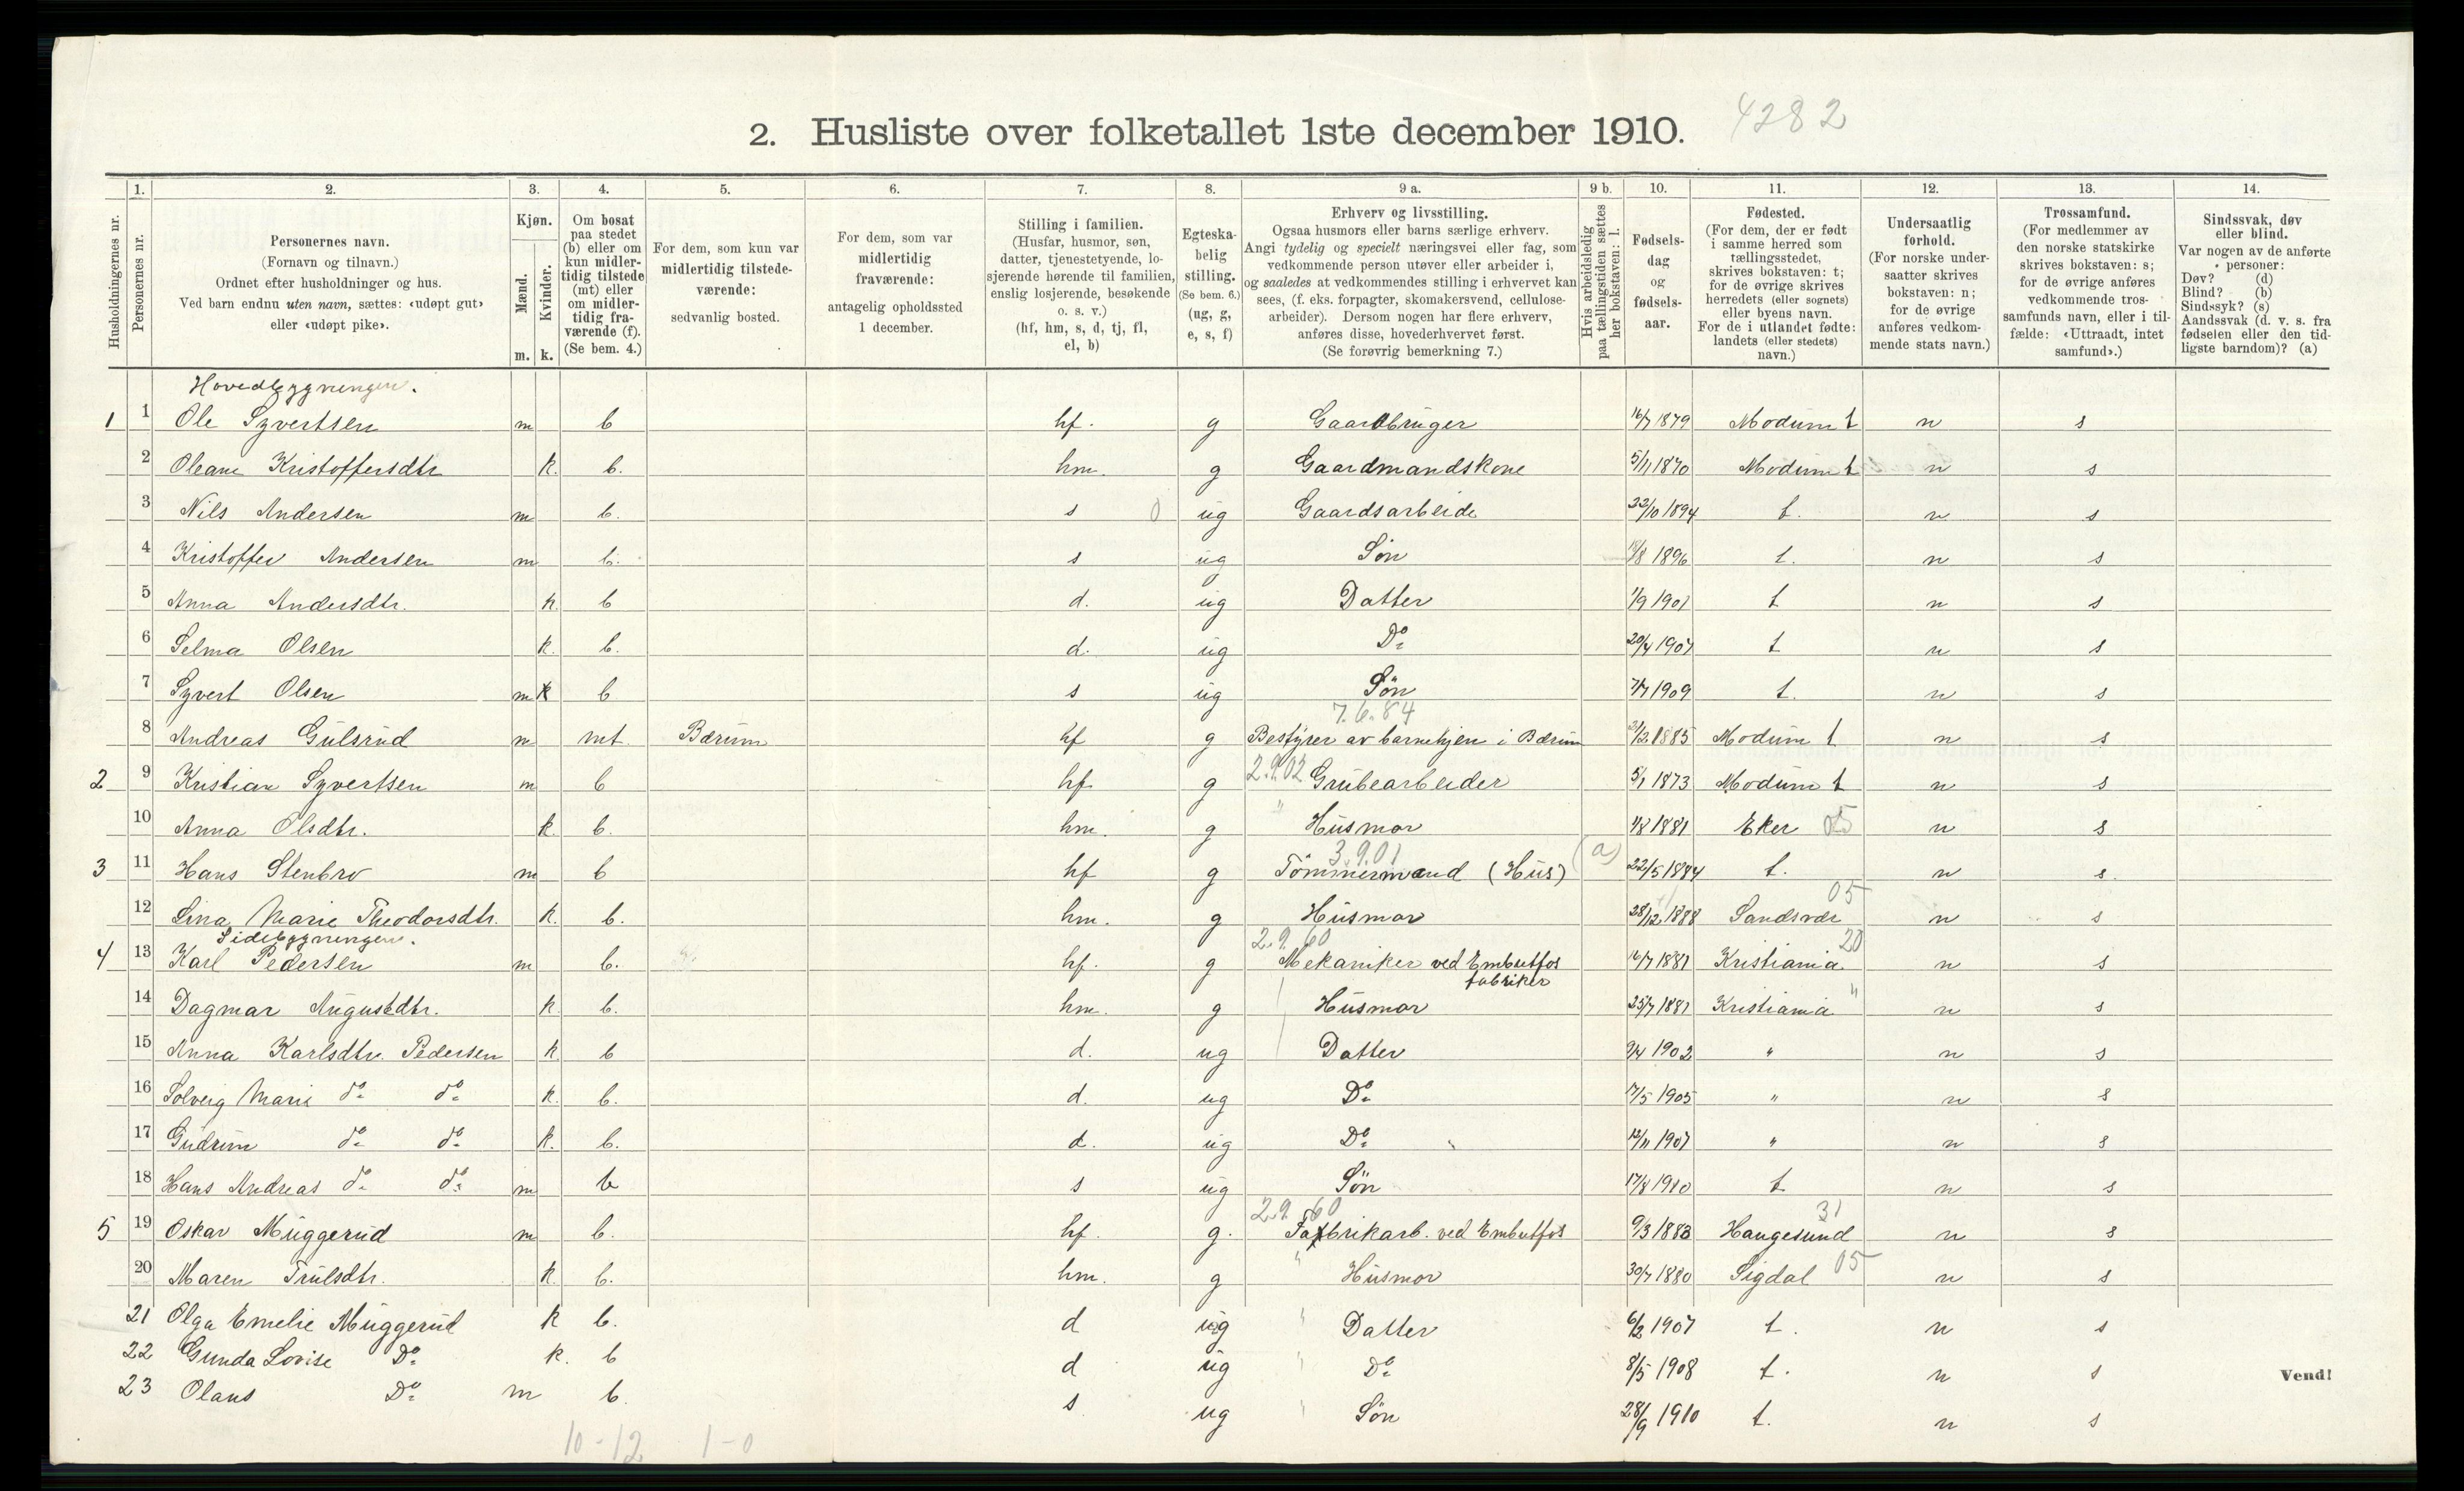 2. Husliste over folketallet 1ste december 1910. 4282
Husholdningernes nr.
1.
Personernes nr.
2.
Personernes navn.
(Fornavn og tilnavn.)
Ordnet efter husholdninger og hus.
Ved barn endnu uten navn, sættes: «udøpt gut»
eller «udøpt pike».
3.
Kjøn.
Mænd.
Kvinder.
m. k.
4.
Om bosat
paa stedet
(b) eller om
kun midler-
tidig tilstede
(mt) eller
om midler-
tidig fra-
værende (f).
(Se bem. 4.)
5.
For dem, som kun var
midlertidig tilstede-
værende:
sedvanlig bosted.
6.
For dem, som var
midlertidig
fraværende:
antagelig opholdssted
1 december.
7.
Stilling i familien.
(Husfar, husmor, søn,
datter, tjenestetyende, lo-
sjerende hørende til familien,
enslig losjerende, besøkende
o. s. v.)
(hf, hm, s, d, tj, fl,
el, b)
8.
Egteska-
belig
stilling.
(Se bem. 6.)
(ug, g,
e, s, f)
9 a.
Erhverv og livsstilling.
Ogsaa husmors eller barns særlige erhverv.
Angi tydelig og specielt næringsvei eller fag, som
vedkommende person utøver eller arbeider i,
og saaledes at vedkommendes stilling i erhvervet kan
sees, (f. eks. forpagter, skomakersvend, cellulose-
arbeider). Dersom nogen har flere erhverv,
anføres disse, hovederhvervet først.
(Se forøvrig bemerkning 7.)
9 b.
Hvis arbeidsledig
paa tællingstiden sættes
her bokstaven: l.
10.
Fødsels-
dag
og
fødsels-
aar.
11.
Fødested.
(For dem, der er født
i samme herred som
tællingsstedet,
skrives bokstaven: t;
for de øvrige skrives
herredets (eller sognets)
eller byens navn.
For de i utlandet fødte:
landets (eller stedets)
navn.)
12.
Undersaatlig
forhold.
(For norske under-
saatter skrives
bokstaven: n;
for de øvrige
anføres vedkom-
mende stats navn.)
13.
Trossamfund.
(For medlemmer av
den norske statskirke
skrives bokstaven: s;
for de øvrige anføres
vedkommende tros-
samfunds navn, eller i til-
fælde: «Uttraadt, intet
samfund».)
14.
Sindssvak, døv
eller blind.
Var nogen av de anførte
personer:
Døv? (d)
Blind? (b)
Sindssyk? (s)
Aandssvak (d. v. s. fra
fødselen eller den tid-
ligste barndom)? (a)
Hovedbygningen.
1 1 Ole Syvertsen m b hf. g Gaardbruger 16/7 1879 Modum t n s
2 Oleane Kristoffersdtr k. b. hm. g Gaardmandskone 5/11 1870 Modum t n s
3 Nils Andersen m b. s 0 ug Gaardsarbeide 22/10 1894 t. n s
4 Kristoffer Andersen m b. s ug Søn 18/8 1896 t. n s
5 Anna Andersdtr. k. b d. ug Datter 1/9 1901 t n s
6 Selma Olsen k. b. d. ug Do 20/4 1907 t n s
7 Syvert Olsen m k b s ug Søn 7/7 1909 t. n s
7.6.84
8 Andreas Gulsrud m mt Bærum hf g Bestyrer av barnehjem i Bærum 31/12 1885 Modum t n s
2 9 Kristian Syvertsen m b hf g 2.9.02 Grubearbeider 5/1 1873 Modum t n s
10 Anna Olsdtr. k. b. hm. g " Husmor 1/8 1881 Eker 05 n s
3.9.01 (a)
3 11 Hans Stenbro m b hf g Tømmermand (Hus) 22/5 1884 t. n s.
12 Lina Marie Theodorsdtr. k. b. hm. g Husmor 28/12 1888 Sandsvær 05 n s
Sidebygningen.
2.9.60
4 13 Karl Pedersen m b. hf. g Mekaniker ved Embutfos fabriker 16/7 1881 Kristiania 20 n s
14 Dagmar Augustdtr. k. b. hm. g Husmor 25/7 1881 Kristiania " n s
15 Anna Karlsdtr. Pedersen k. b d. ug Datter 9/4 1902 " n s
16 Solveig Marie do do k. b. d. ug Do 17/5 1905 " n s
17 Gudrun do do k. b. d. ug Do 12/11 1907 " n s
18 Hans Andreas do do m b s ug Søn 17/8 1910 t n s
2.9.60
5 19 Oskar Muggerud m b. hf. g. Fabrikarb. ved Embutfos 9/3 1883 Haugesund 31 n s
20 Maren Trulsdtr. k. b. hm. g " Husmor 30/7 1880 Sigdal 05 n s
21 Olga Emelie Muggerud k b. d ug " Datter 6/2 1907 t. n s
22 Gunda Lovise Do k. b d ug " Do 8/5 1908 t. n s
Vend!
23 Olaus Do m b. s ug " Søn 28/9 1910 t. n s
10-12 1-0